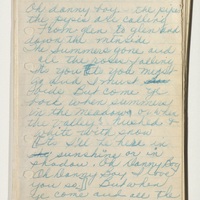 Oh danny boy the pipes
the pipes are calling
From glen to glen and
down the
The Summers gone and
all the roses falling
tis you tis you must
go and I must
bide But come ye
back when summers
in the meadow or when
the valleys hushed &
white with snow
tis Ill be here in
sunshine or in
shadow. Oh Danny boy
Oh Danny Boy I love
you so But when
ye come and all the